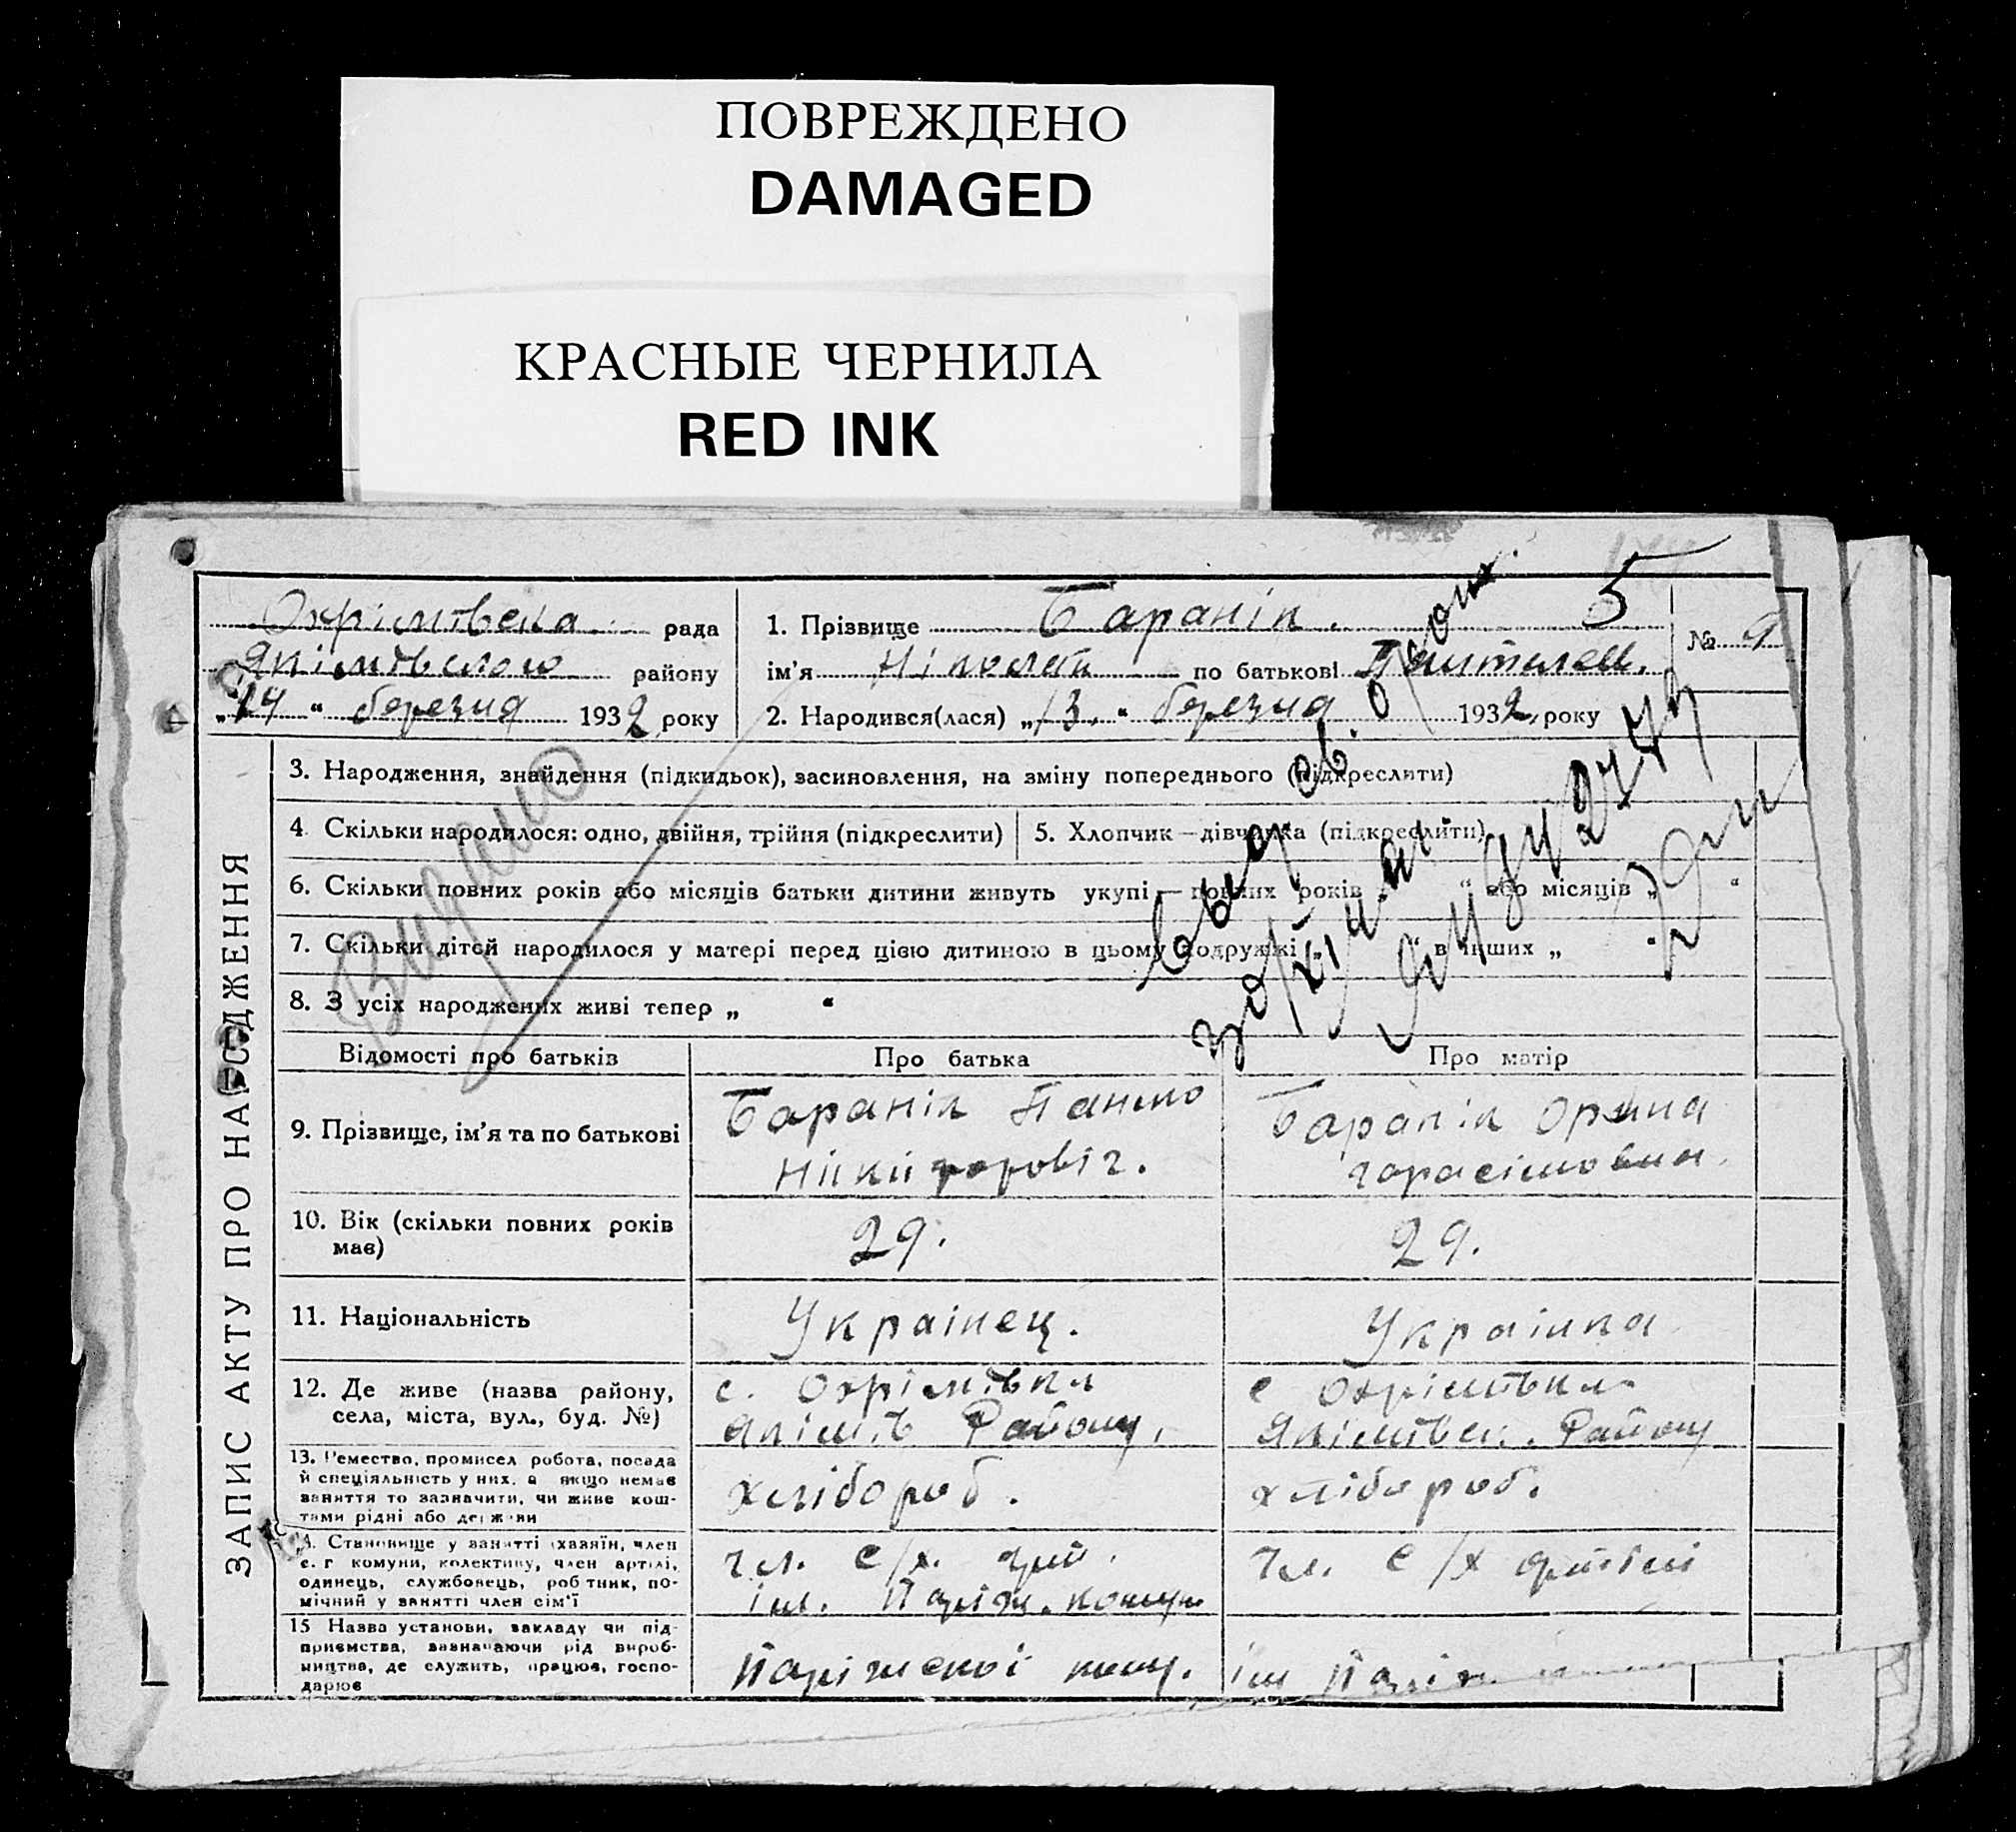 ПОВРЕЖДЕНО
DAMAGED
КРАСНЫЕ ЧЕРНИЛА
RED INK
5
Охрімівська рада
Якімівсього району
„14“ березня 1932 року
1. Прізвище Баранік. № 9
ім'я Ніколай по батькові
2. Народився(лася) „13.“ березня 1932 року
Видано
ЗАПИС АКТУ ПРО НАРОДЖЕННЯ
3. Народження, знайдення (підкидьок), засиновлення, на зміну попереднього (підкреслити)
4. Скільки народилося: одно, двійня, трійня (підкреслити)
5. Хлопчик — дівчинка (підкреслити)
6. Скільки повних років або місяців батьки дитини живуть укупі — повних років „ “ або місяців „ “
7. Скільки дітей народилося у матері перед цією дитиною в цьому подружжі „ “ в інших „ “
8. З усіх народжених живі тепер „ “
Відомості про батьків
Про батька
Про матір
9. Прізвище, ім'я та по батькові
Баранік
Нікіфоровіч.
Баранік Орина
Гарасімовна.
10. Вік (скільки повних років
має)
29.
29.
11. Національність
Украінец.
Украінка
12. Де живе (назва району,
села, міста, вул., буд. №)
с. Охрімівка
Якімів Району.
с Охрімівка
Якімівск. Району
13. Ремество, промисел робота, посада
й спеціяльність у них, а якщо немає
заняття то зазначити, чи живе кош-
тами рідні або держави
хлібороб.
хлібороб.
14. Становище у занятті (хазяїн, член
с. г комуни, колективу, член артілі,
одинець, службовець, робітник, по-
мічний у занятті член сім'ї
чл. с/х. арт.
ім. Паріж. комун
чл. с/х артілі
15 Назва установи, закладу чи під-
приємства, зазначаючи рід вироб-
ництва, де служить, працює, госпо-
дарює
Паріжскоі комун.
ім Паріж